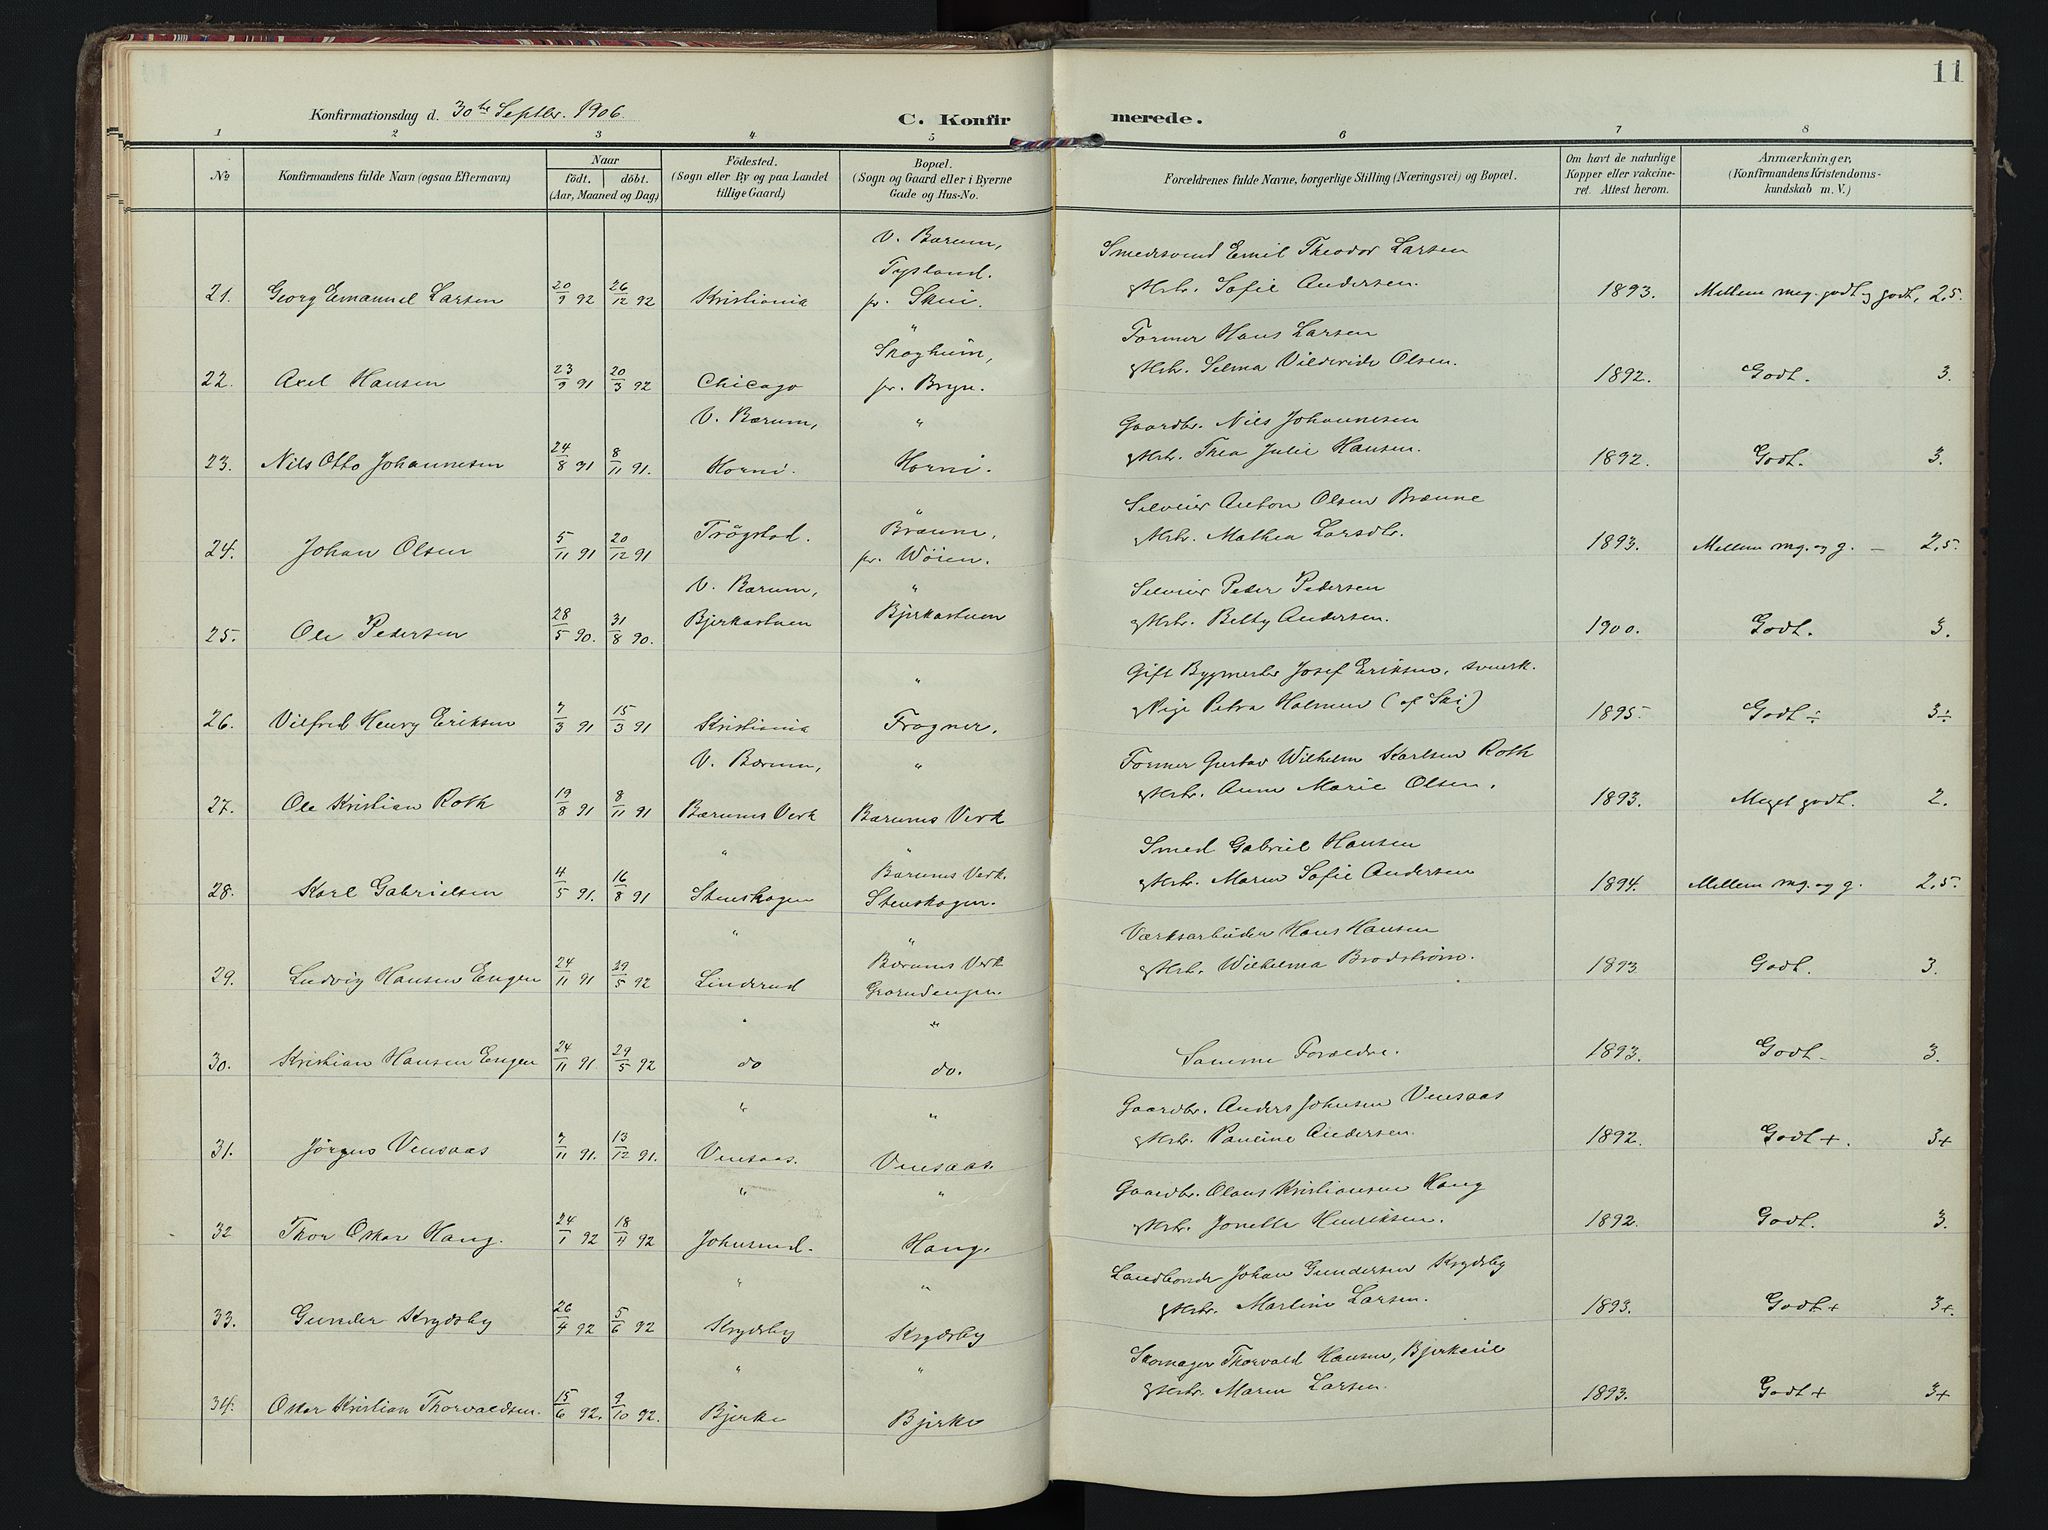 11
Konfirmationsdag d. 30te Septbr. 1906.
C. Konfirmerede.
1 2 3 4 5 6 7 8
No
Konfirmandens fulde Navn (ogsaa Efternavn)
Naar
födt. döbt.
(Aar, Maaned og Dag)
Födested.
(Sogn eller By og paa Landet
tillige Gaard)
Bopæl.
(Sogn og Gaard eller i Byerne
Gade og Hus-No.
Forældrenes fulde Navne, borgerlige Stilling (Næringsvei) og Bopæl.
Om havt de naturlige
Kopper eller vakcine-
ret. Attest herom.
Anmærkninger,
(Konfirmandens Kristendoms-
kundskab m. V.)
V. Bærum, Smedsvend Emil Theodor Larsen
Tysland.
21. Georg Emanuel Larsen 20/9 92 26/12 92 Kristiania pr. Skui. Hstr. Sofie Andersen. 1893. Mellem meg. godt og godt, 2,5.
" Former Hans Larsen
Skogheim,
22. Axel Hansen 23/9 91 20/3 92 Chicago pr. Bryn. Hstr. Selma Olsen. 1892. Godt. 3.
V. Bærum, " Gaardbr. Nils Johannesen
23. Nils Otto Johannesen 24/8 91 8/11 91. Horni. Horni. Hstr. Thea Julie Hansen. 1892. Godt. 3.
" Seleier Anton Olsen Brænne
Trögstad. Brænne,
24. Johan Olsen 5/11 91 20/12 91 pr. Wöien. Hstr. Mathea Larsdtr. 1893. Mellem mg. og g. – 2,5.
V. Bærum, " Seleier Peder Pedersen
25. Ole Pedersen 28/5 90. 31/8 90. Bjerkastuen Bjerkastuen Hstr. Betty Andersen. 1900. Godt. 3.
" Gift Bygmester Josef Eriksen,
26. Vilfred Henry Eriksen 7/3 91 15/3 91 Kristiania Frogner. Pige Petra Holmen (af Ski) 1895. Godt ÷ 3÷
V. Bærum, " Former Gustav Wilhelm Karlsen Roth
27. Ole Kristian Roth 19/8 91 8/11 91 Bærums Verk Bærums Verk Hstr. Anne Marie Olsen. 1893. Meget godt. 2.
" " Smed Gabriel Hansen
Bærums Verk.
28. Karl Gabrielsen 4/5 91. 16/8 91 Stenskogen Stenskogen. Hstr. Maren Sofie Andersen 1894. Mellem mg. og g. 2,5.
" " Værksarbeider Hans Hansen
Bærums Verk
29. Ludvig Hansen Engen 24/11 91 29/5 92 Linderud Hstr. Wilhelma Brodström. 1893 Godt. 3.
" "
30. Kristian Hansen Engen 24/11 91. 29/5 92 do do. Samme Forældre. 1893. Godt 3.
" " Gaardbr. Anders Johnsen Vensaas
31. Jörgen Vensaas 7/11 91. 13/12 91. Vensaas. Vensaas. Hstr. Pauline Andersen. 1892. Godt +. 3+
" " Gaardbr. Olaus Kristiansen Haug
32 Thor Oskar Haug. 24/1 92 18/4 92 Johnsrud. Haug. Hstr. Jonette Henriksen. 1892. Godt. 3.
" " Landbonde Johan Gundersen Krydsby
33. Gunder Krydsby 26/4 92 5/6 92 Krydsby Krydsby Hstr. Martine Larsen. 1893. Godt + 3+.
" " Skomager Thorvald Hansen, Bjerkeeie
34. Oskar Kristian Thorvaldsen. 15/6 92. 9/10 92. Bjerke Bjerke Hstr. Maren Larsen. 1893. Godt + 3+